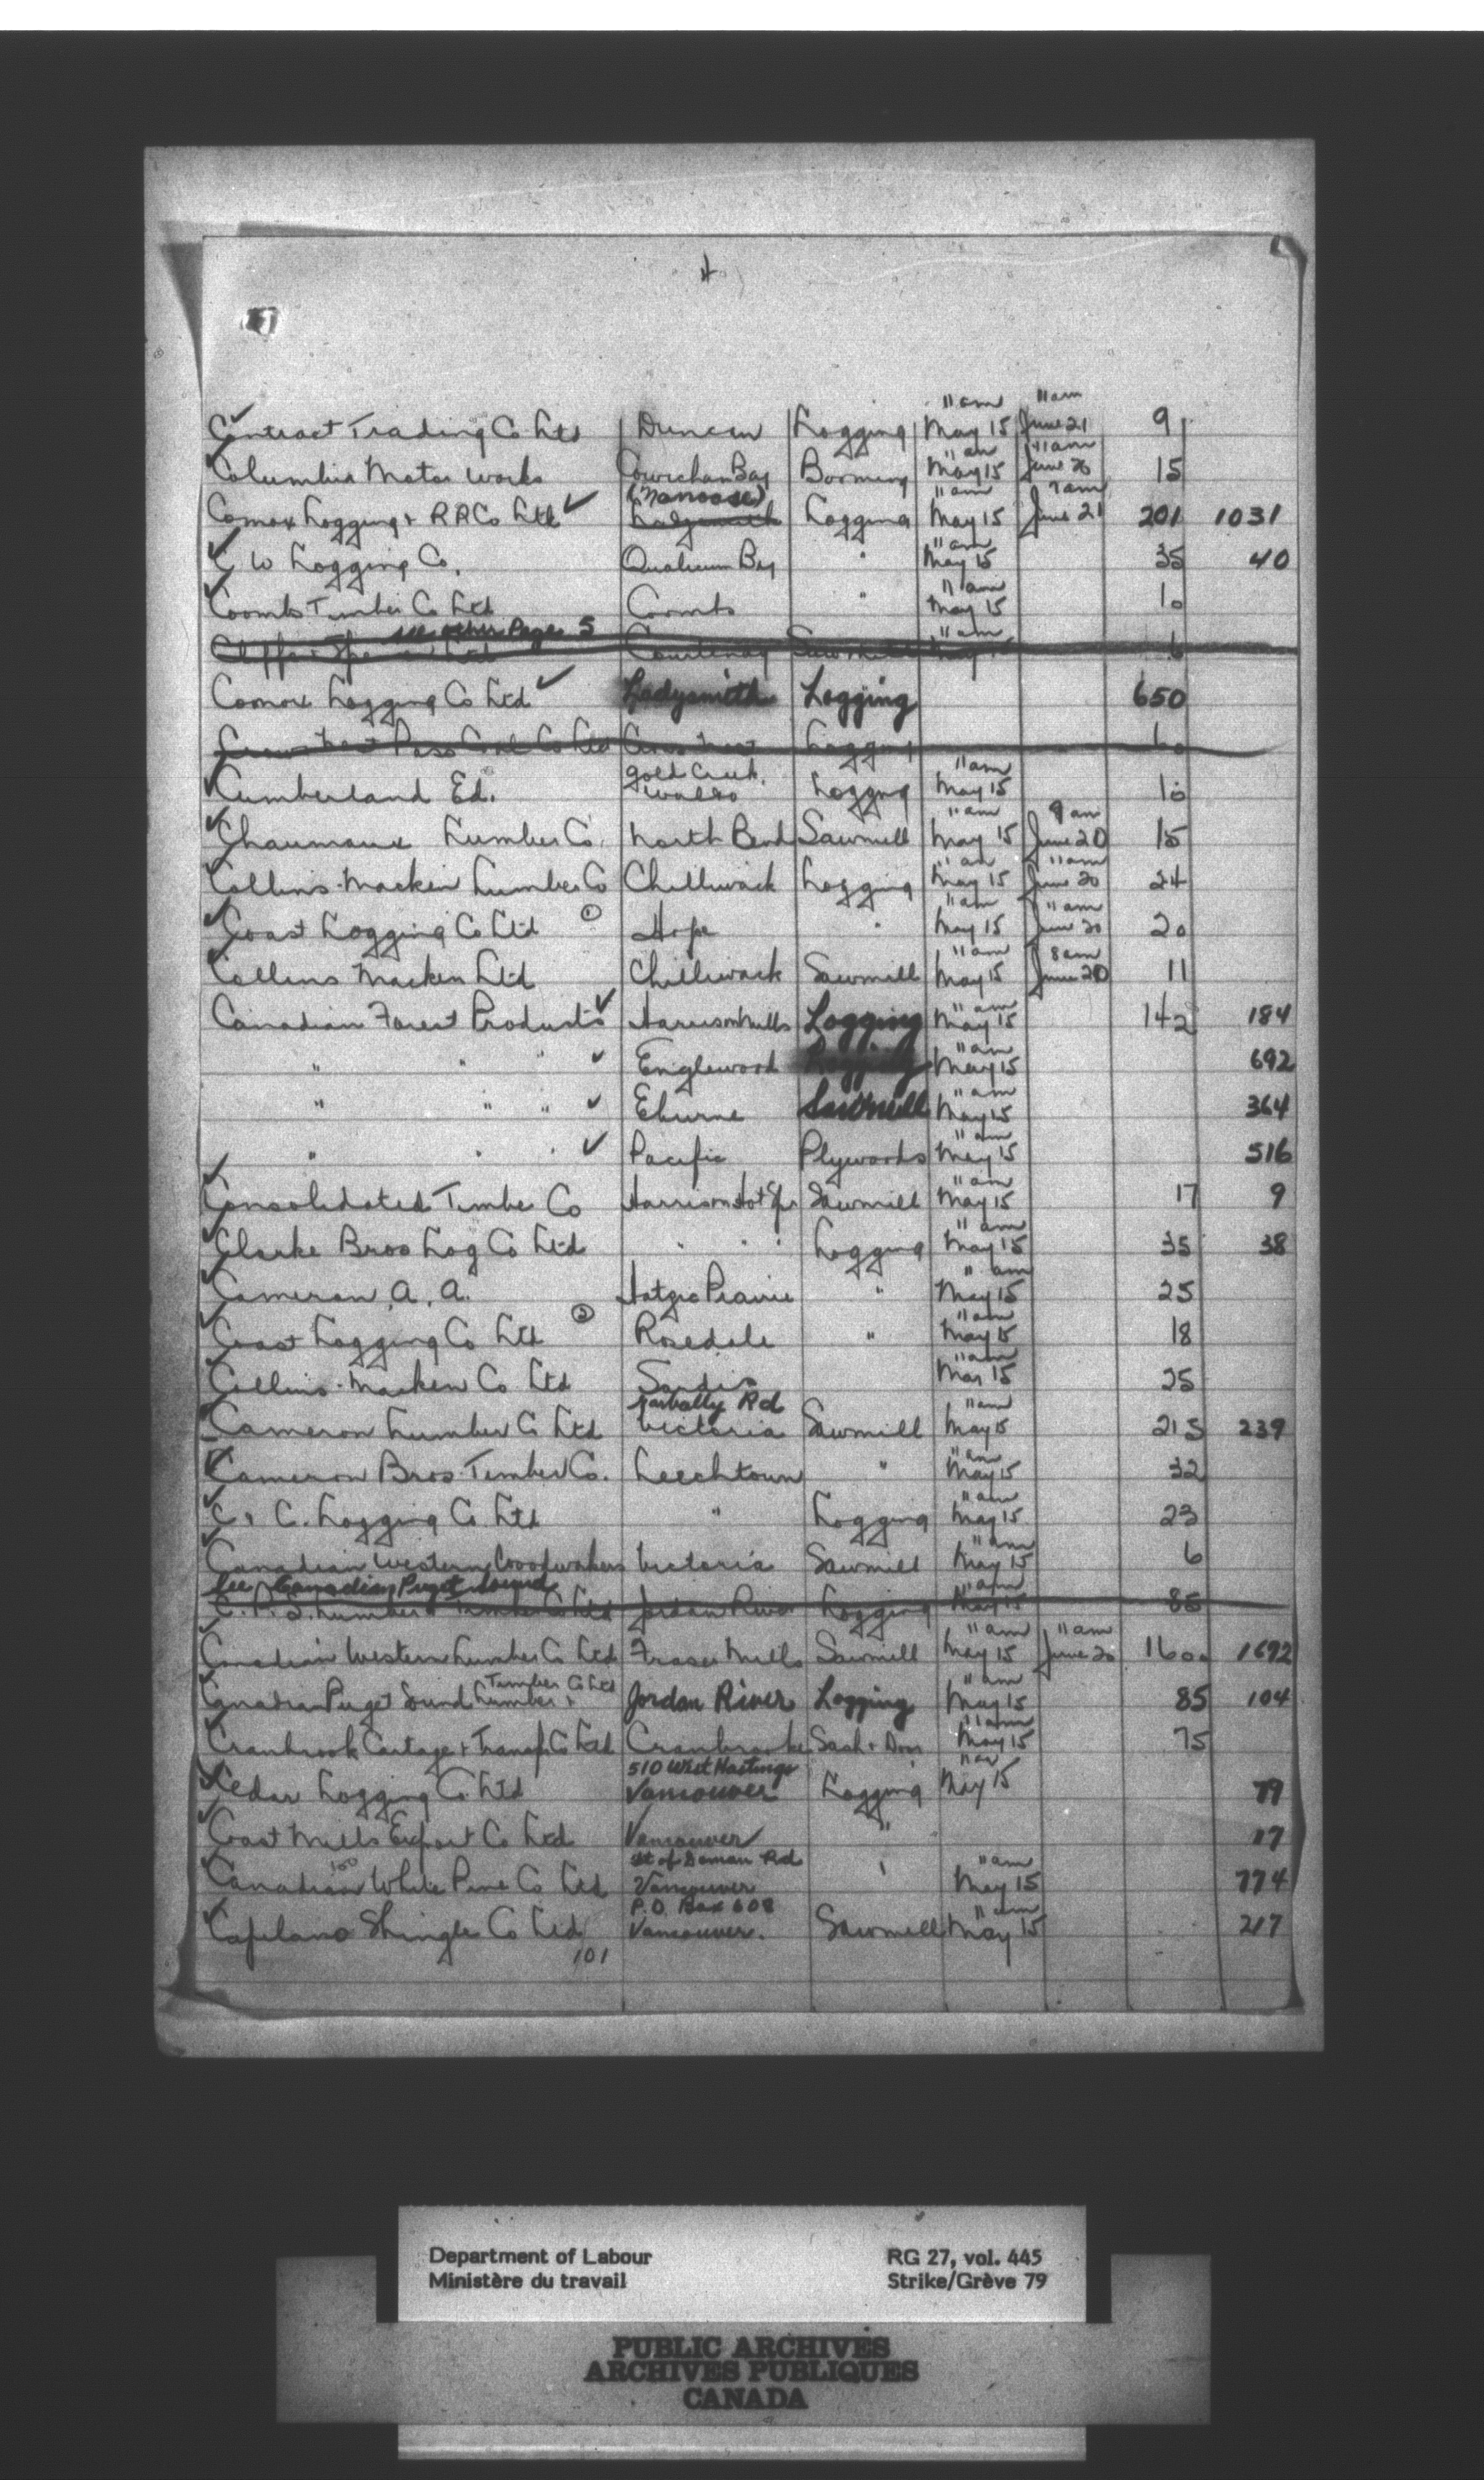 4
✓ Contract Trading Co Ltd Duncan Logging 11 am May 15 11 am June 21 9
✓ Columbia Motor Works Cowichan Bay Booming 11 am May 15 11 am June 20 15
Comox Logging & RR Co Ltd ✓ (Nanoose) Ladysmith Logging 11 am May 15 7 am June 21 201 1031
✓ C W Logging Co. Qualicum Bay " 11 am May 15 35 40
✓ Coombs Timber Co Ltd Coombs " 11 am May 15 10
see other Page 5
Courtenay Sawmill 11 am May 15 6
Comox Logging Co Ltd ✓ Ladysmith Logging 650
Crows Nest Pass Coal Co Ltd Crows Nest Logging
✓ Cumberland Ed. Gold Creek, Waldo Logging 11 am May 15 10
✓ Chaumaux Lumber Co. North Bend Sawmill 11 am May 15 9 am June 20 15
✓ Collins-Macken Lumber Co Chilliwack Logging 11 am May 15 11 am June 20 24
✓ Coast Logging Co Ltd ① Hope " 11 am May 15 11 am June 20 20
✓ Collins Macken Ltd Chilliwack Sawmill 11 am May 15 8 am June 20 11
Canadian Forest Products ✓ Harrison Mills Logging 11 am May 15 142 184
" " " ✓ Englewood Logging 11 am May 15 692
" " " ✓ Eburne Sawmill 11 am May 15 364
" " " ✓ Pacific Plywoods 11 am May 15 516
✓ Consolidated Timber Co Harrison Hot Spr Sawmill 11 am May 15 17 9
✓ Clarke Bros Log Co Ltd " " " Logging 11 am May 15 35 38
✓ Cameron, A. A. Hatzic Prairie " 11 am May 15 25
✓ Coast Logging Co Ltd ② Rosedale " 11 am May 15 18
✓ Collins-Macken Co Ltd Sardis 11 am May 15 25
✓ Cameron Lumber Co Ltd Garbally Rd Victoria Sawmill 11 am May 15 215 239
✓ Cameron Bros Timber Co. Leechtown " 11 am May 15 32
✓ C. & C. Logging Co Ltd " Logging 11 am May 15 23
✓ Canadian Western Woodworkers Victoria Sawmill 11 am May 15 6
See Canadian Puget Sound
C. P. S. Lumber & Timber Co Ltd Jordan River Logging 11 am May 15 85
✓ Canadian Western Lumber Co Ltd Fraser Mills Sawmill 11 am May 15 11 am June 20 1600 1692
✓ Canadian Puget Sound Lumber & Timber Co Ltd Jordan River Logging 11 am May 15 85 104
✓ Cranbrook Cartage & Transf. Co Ltd Cranbrook Sash & Door 11 am May 15 75
✓ Cedar Logging Co Ltd 510 West Hastings Vancouver Logging 11 am May 15 79
✓ Coast Mills Export Co Ltd Vancouver " 17
✓ Canadian White Pine Co Ltd ft of Boman Rd Vancouver " 11 am May 15 774
100
✓ Capilano Shingle Co Ltd P.O. Box 608 Vancouver. Sawmill 11 am May 15 217
101
Department of Labour
Ministère du travail
RG 27, vol. 445
Strike/Grève 79
PUBLIC ARCHIVES
ARCHIVES PUBLIQUES
CANADA